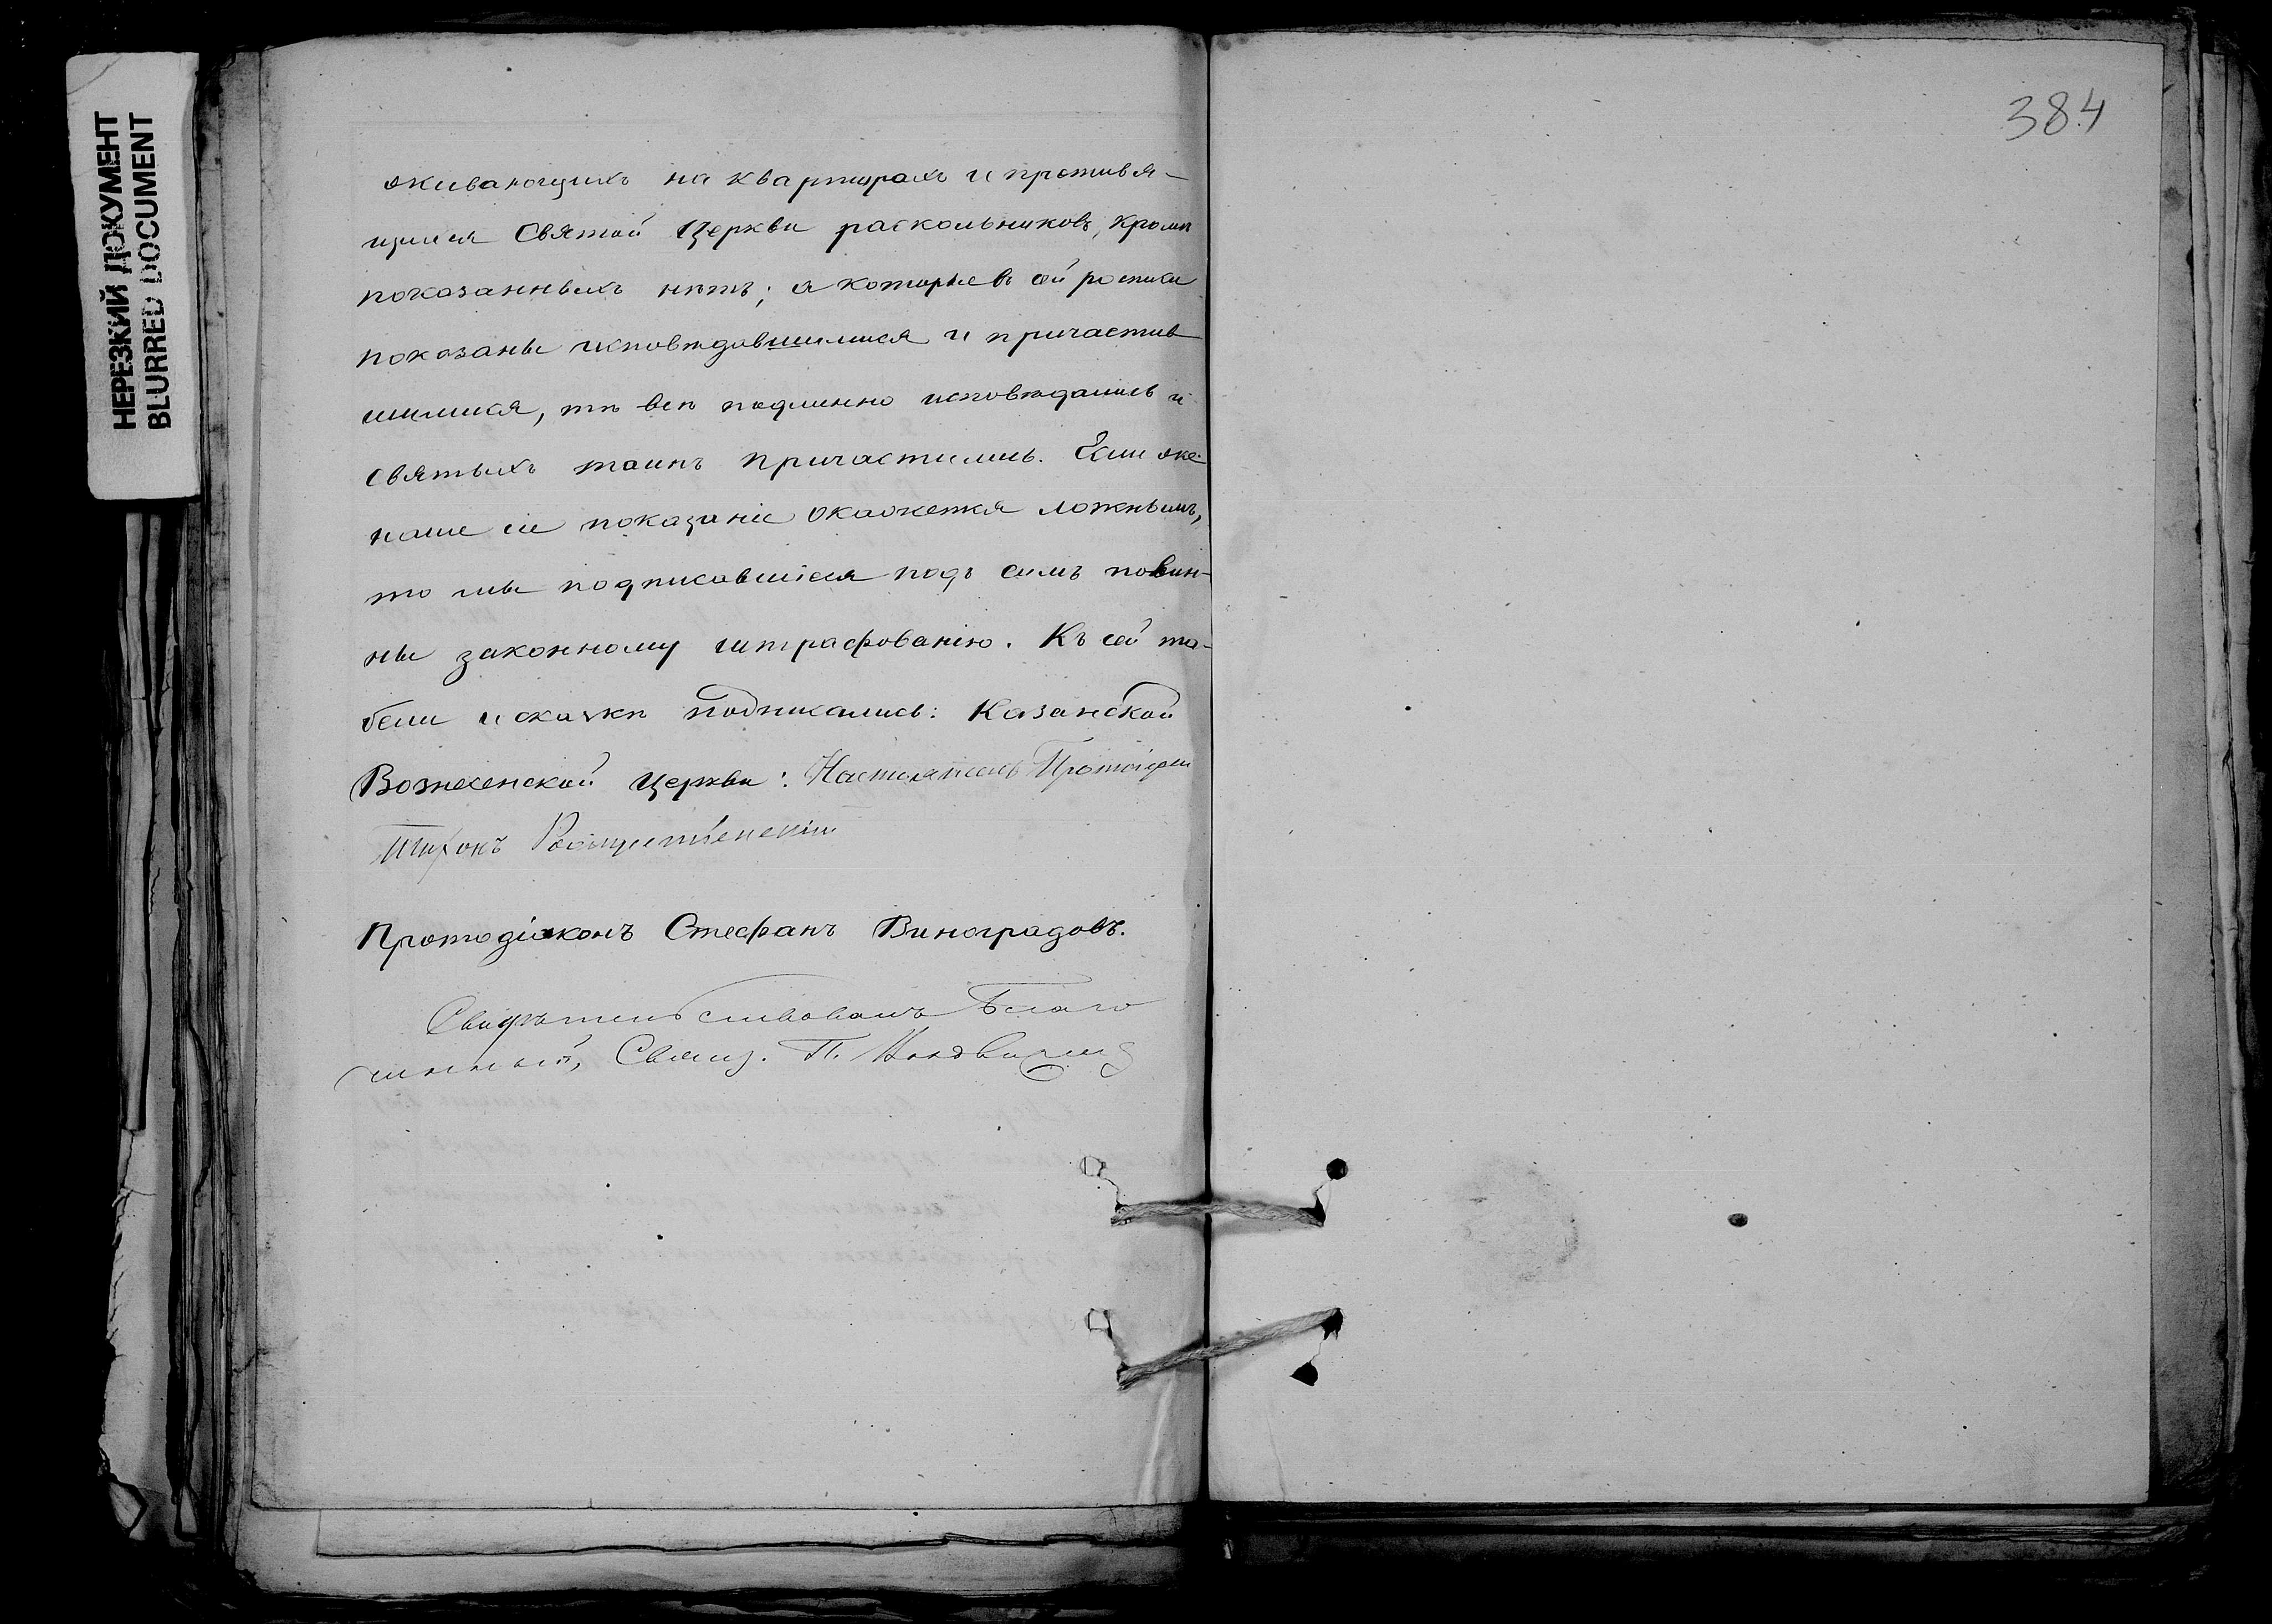 НЕРЕЗКИЙ ДОКУМЕНТ
BLURRED DOCUMENT
384
живающихъ на квартирахъ и противя-
щихся Святой Церкви раскольниковъ, кромѣ
показанныхъ нѣтъ; а которые въ сей росписи
показаны исповѣдавшимися и причастив
шимися, тѣ всѣ подлинно исповѣдались и
святыхъ таинъ причастились. Если же
наше сіе показаніе окажется ложнымъ,
то мы подписавшіеся подъ симъ повин-
ны законному штрафованію. Къ сей та-
бели и сказкѣ подписались: Казанской
Вознесенской церкви: Настоятель Протоіерей
Рождественскій
Протодіаконъ Стефанъ Виноградовъ.
Свидѣтельствовалъ Благо
чинный, Свящ. П.